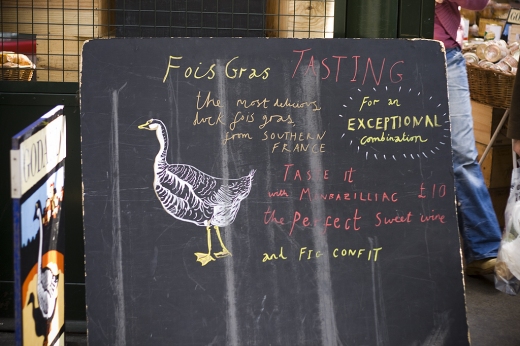 Fois Gras TASTING
the most delicious
duck fois gras
from SOUTHERN
FRANCE
For an
EXCEPTIONAL
combination
TASTE IT
with MONBAZILLIAC £10
the perfect sweet wine
and FIG CONFIT